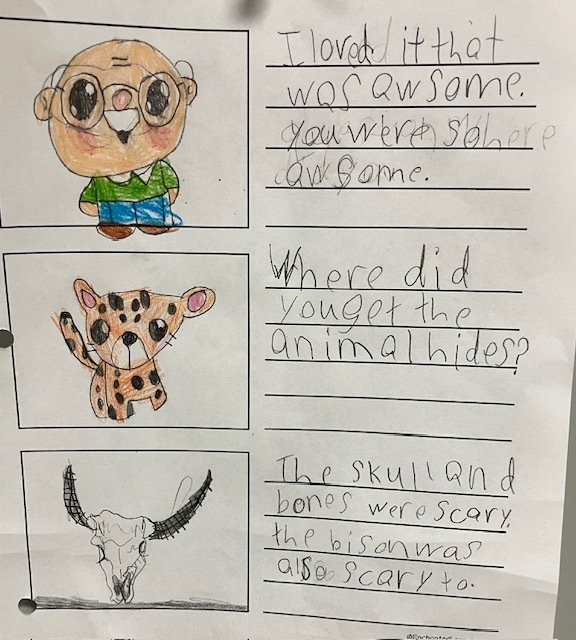 I loved it that
was awsome.
you were so
awsome.
Where did
you get the
animal hides?
The skull and
bones were scary.
the bison was
also scary to.